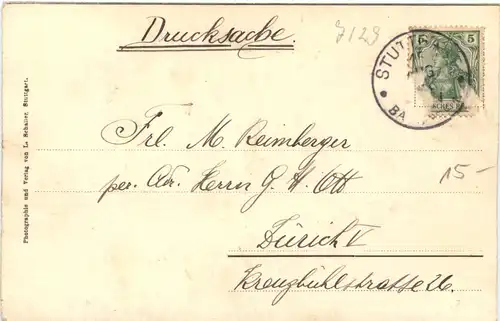 Drucksache.
7123
5 5
STUTT
BA
Frl. M. Reimberger
per. Adr. Herrn G. H. Ott
Zürich V
Kreuzbühlstrasse 26.
15-
Photographie und Verlag von L. Schaller, Stuttgart.